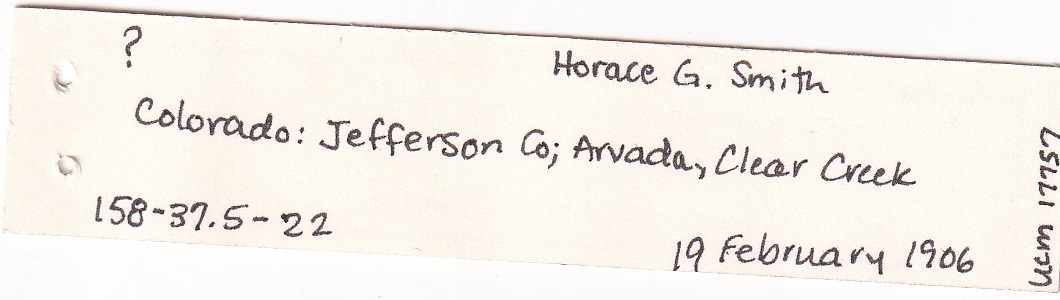 ?
Horace G. Smith
Colorado: Jefferson Co; Arvada, Clear Creek
158-37.5-22
19 February 1906
UCM 17757